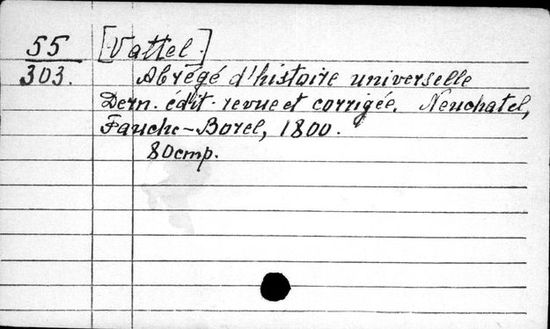 55 [Vattel.]
303. Abrégé d'histoire universelle
Dern. édit. revue et corrigée. Neuchatel,
Fauche-Borel, 1800.
80cmp.